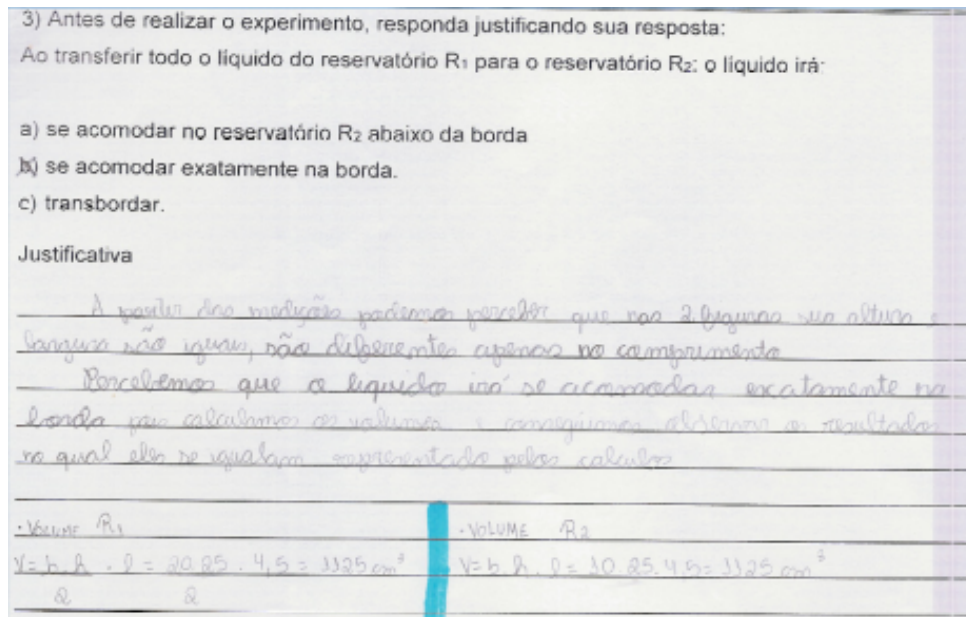 3) Antes de realizar o experimento, responda justificando sua resposta:
Ao transferir todo o líquido do reservatório R₁ para o reservatório R₂: o líquido irá:
a) se acomodar no reservatório R₂ abaixo da borda
b) se acomodar exatamente na borda.
c) transbordar.
Justificativa
A partir das medições podemos perceber que nas 2 figuras sua altura e
largura são iguais, são diferentes apenas no comprimento
Percebemos que o liquido irá se acomodar exatamente na
borda pois calculamos os volumes e conseguimos observar os resultados
no qual eles se igualam representado pelos calculos
· VOLUME R₁
V = b . h . l = 20.25 . 4,5 = 1125 cm³
2 2
· VOLUME R₂
V = b . h . l = 10.25.4,5 = 1125 cm³